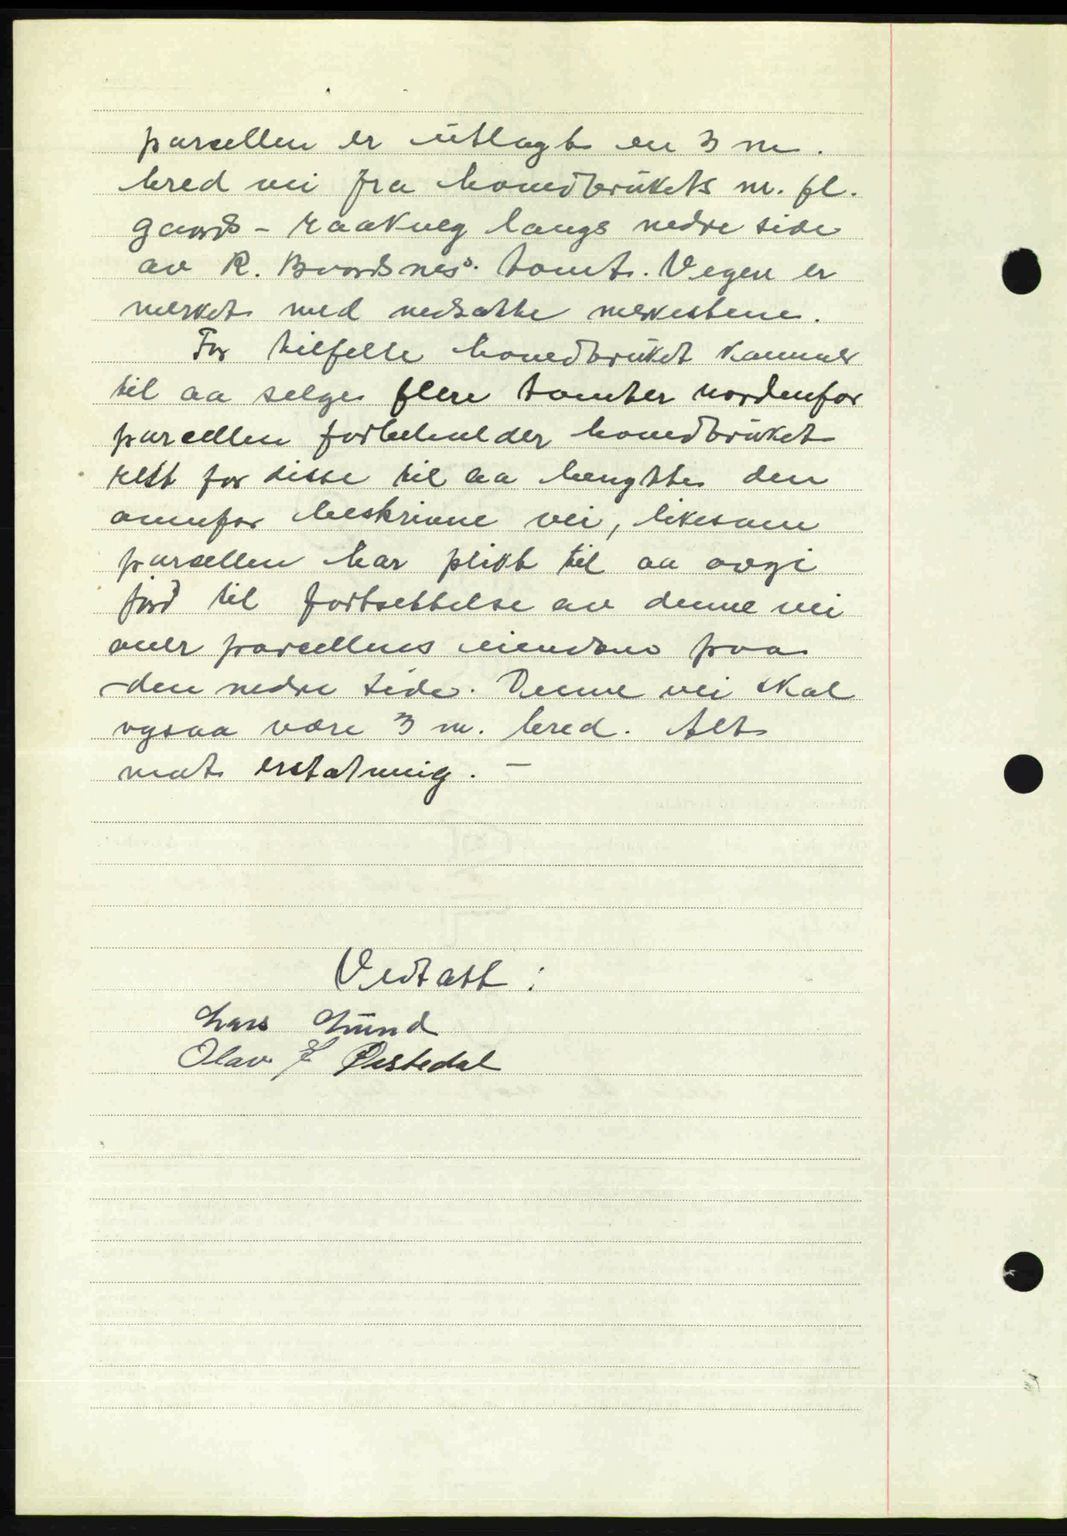 parcellen er utlagt en 3 m.
bred vei fra hovedbrukets m. fl.
gaards - raakveg langs nedre side
av R. Baardsnes' tomt. Vegen er
merket med nedsatte merkestene.
For tilfelle hovedbruket kommer
til aa selge flere tomter nordenfor
parcellen forbeholder hovedbruket
rett for disse til aa benytte den
ovenfor beskrevne vei, likesom
parcellen har plikt til aa avgi
jord til fortsettelse av denne vei
over parcellens eiendom paa
den nedre side. Denne vei skal
ogsaa være 3 m. bred. Alt
mot erstatning. -
Vedtatt :
Lars Lund
Olav Øistedal